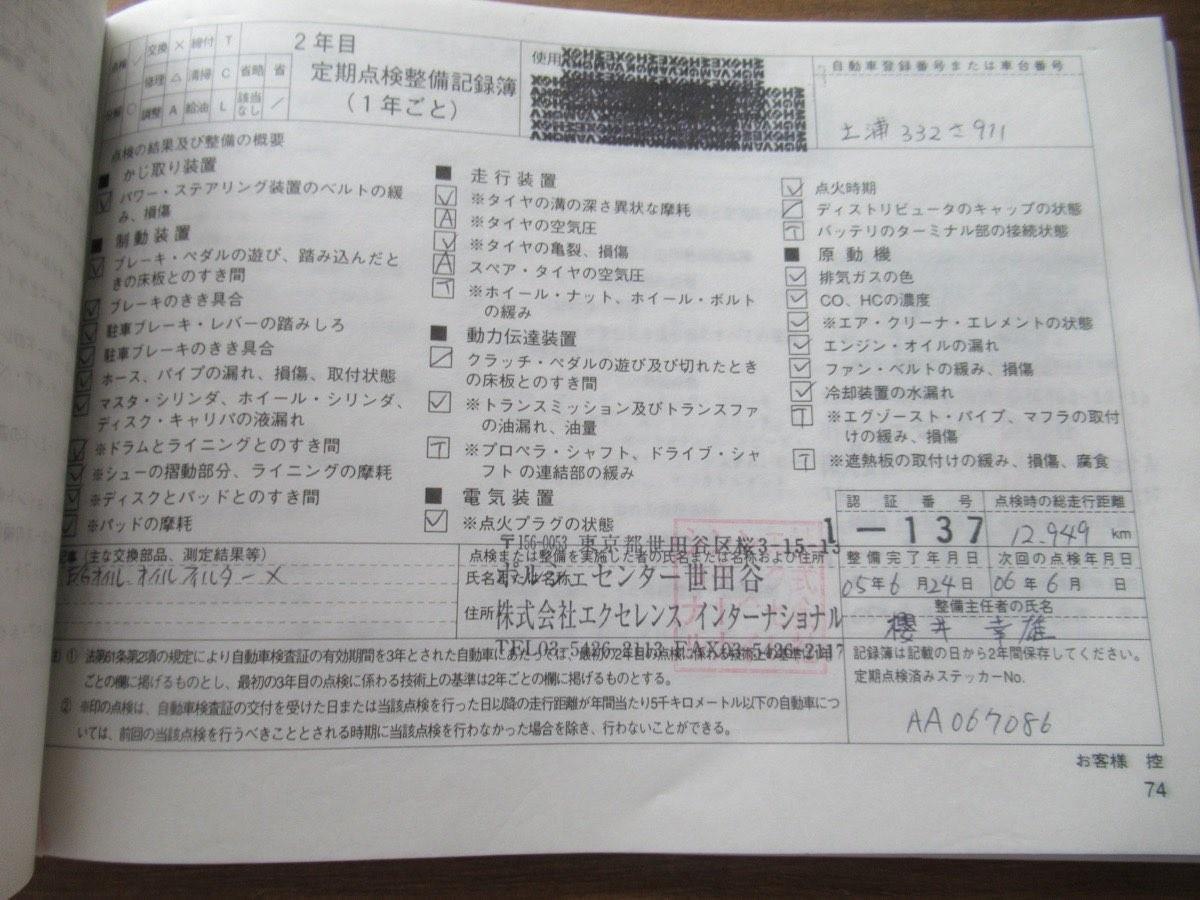 点検 ✓ 交換 × 締付 T
修理 △ 清掃 C 省略 省
分解 ○ 調整 A 給油 L 該当なし ／
2年目
定期点検整備記録簿
（1年ごと）
使用
自動車登録番号または車台番号
土浦 332 さ 911
点検の結果及び整備の概要
■ かじ取り装置
✓ パワー・ステアリング装置のベルトの緩
み、損傷
■ 制動装置
✓ ブレーキ・ペダルの遊び、踏み込んだと
きの床板とのすき間
✓ ブレーキのきき具合
✓ 駐車ブレーキ・レバーの踏みしろ
✓ 駐車ブレーキのきき具合
✓ ホース、パイプの漏れ、損傷、取付状態
✓ マスタ・シリンダ、ホイール・シリンダ、
ディスク・キャリパの液漏れ
✓ ※ドラムとライニングとのすき間
✓ ※シューの摺動部分、ライニングの摩耗
✓ ※ディスクとパッドとのすき間
✓ ※パッドの摩耗
■ 走行装置
✓ ※タイヤの溝の深さ異状な摩耗
A ※タイヤの空気圧
✓ ※タイヤの亀裂、損傷
A スペア・タイヤの空気圧
T ※ホイール・ナット、ホイール・ボルト
の緩み
■ 動力伝達装置
／ クラッチ・ペダルの遊び及び切れたとき
の床板とのすき間
✓ ※トランスミッション及びトランスファ
の油漏れ、油量
T ※プロペラ・シャフト、ドライブ・シャ
フトの連結部の緩み
■ 電気装置
✓ ※点火プラグの状態
✓ 点火時期
／ ディストリビュータのキャップの状態
T バッテリのターミナル部の接続状態
■ 原動機
✓ 排気ガスの色
✓ CO、HCの濃度
✓ ※エア・クリーナ・エレメントの状態
✓ エンジン・オイルの漏れ
✓ ファン・ベルトの緩み、損傷
✓ 冷却装置の水漏れ
T ※エグゾースト・パイプ、マフラの取付
けの緩み、損傷
T ※遮熱板の取付けの緩み、損傷、腐食
認証番号 点検時の総走行距離
1－137 12,949 km
記事（主な交換部品、測定結果等）
E/Gオイル、オイルフィルター×
点検または整備を実施した者の氏名または名称および住所
氏名または名称
住所
〒156-0053 東京都世田谷区桜3-15-13
ポルシェセンター世田谷
株式会社エクセレンス インターナショナル
TEL03-5426-2113 FAX03-5426-2117
整備完了年月日 次回の点検年月日
05年6月24日 06年6月 日
整備主任者の氏名
櫻井 幸雄
注）① 法第61条第2項の規定により自動車検査証の有効期間を3年とされた自動車にあたっては、最初の2年目の点検に係わる技術上の基準は1年
ごとの欄に掲げるものとし、最初の3年目の点検に係わる技術上の基準は2年ごとの欄に掲げるものとする。
② ※印の点検は、自動車検査証の交付を受けた日または当該点検を行った日以降の走行距離が年間当たり5千キロメートル以下の自動車につ
いては、前回の当該点検を行うべきこととされる時期に当該点検を行わなかった場合を除き、行わないことができる。
記録簿は記載の日から2年間保存してください。
定期点検済みステッカーNo.
AA067086
お客様 控
74